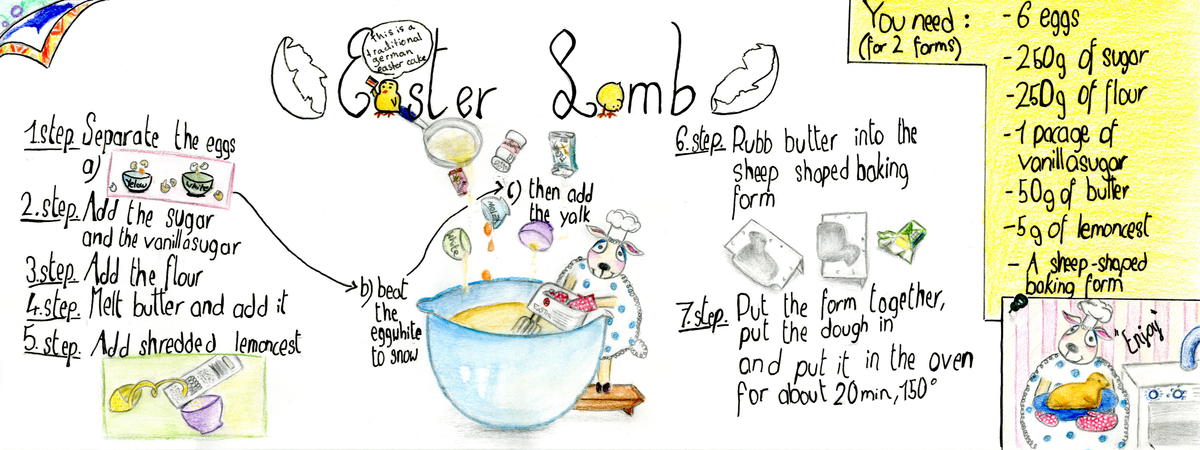 Easter Lamb
This is a
traditional
german
easter cake
You need :
(for 2 forms)
- 6 eggs
- 250g of sugar
- 250g of flour
- 1 pacage of
vanillasugar
- 50g of butter
- 5g of lemoncest
- A sheep-shaped
baking form
1.step Separate the eggs
a)
Yelow
white
2.step. Add the sugar
and the vanillasugar
3.step. Add the flour
4.step. Melt butter and add it
5.step. Add shredded lemoncest
b) beat
the
eggwhite
to snow
c) then add
the yalk
white
6.step. Rubb butter into the
sheep shaped baking
form
7.step. Put the form together,
put the dough in
and put it in the oven
for about 20min, 150°
"Enjoy"